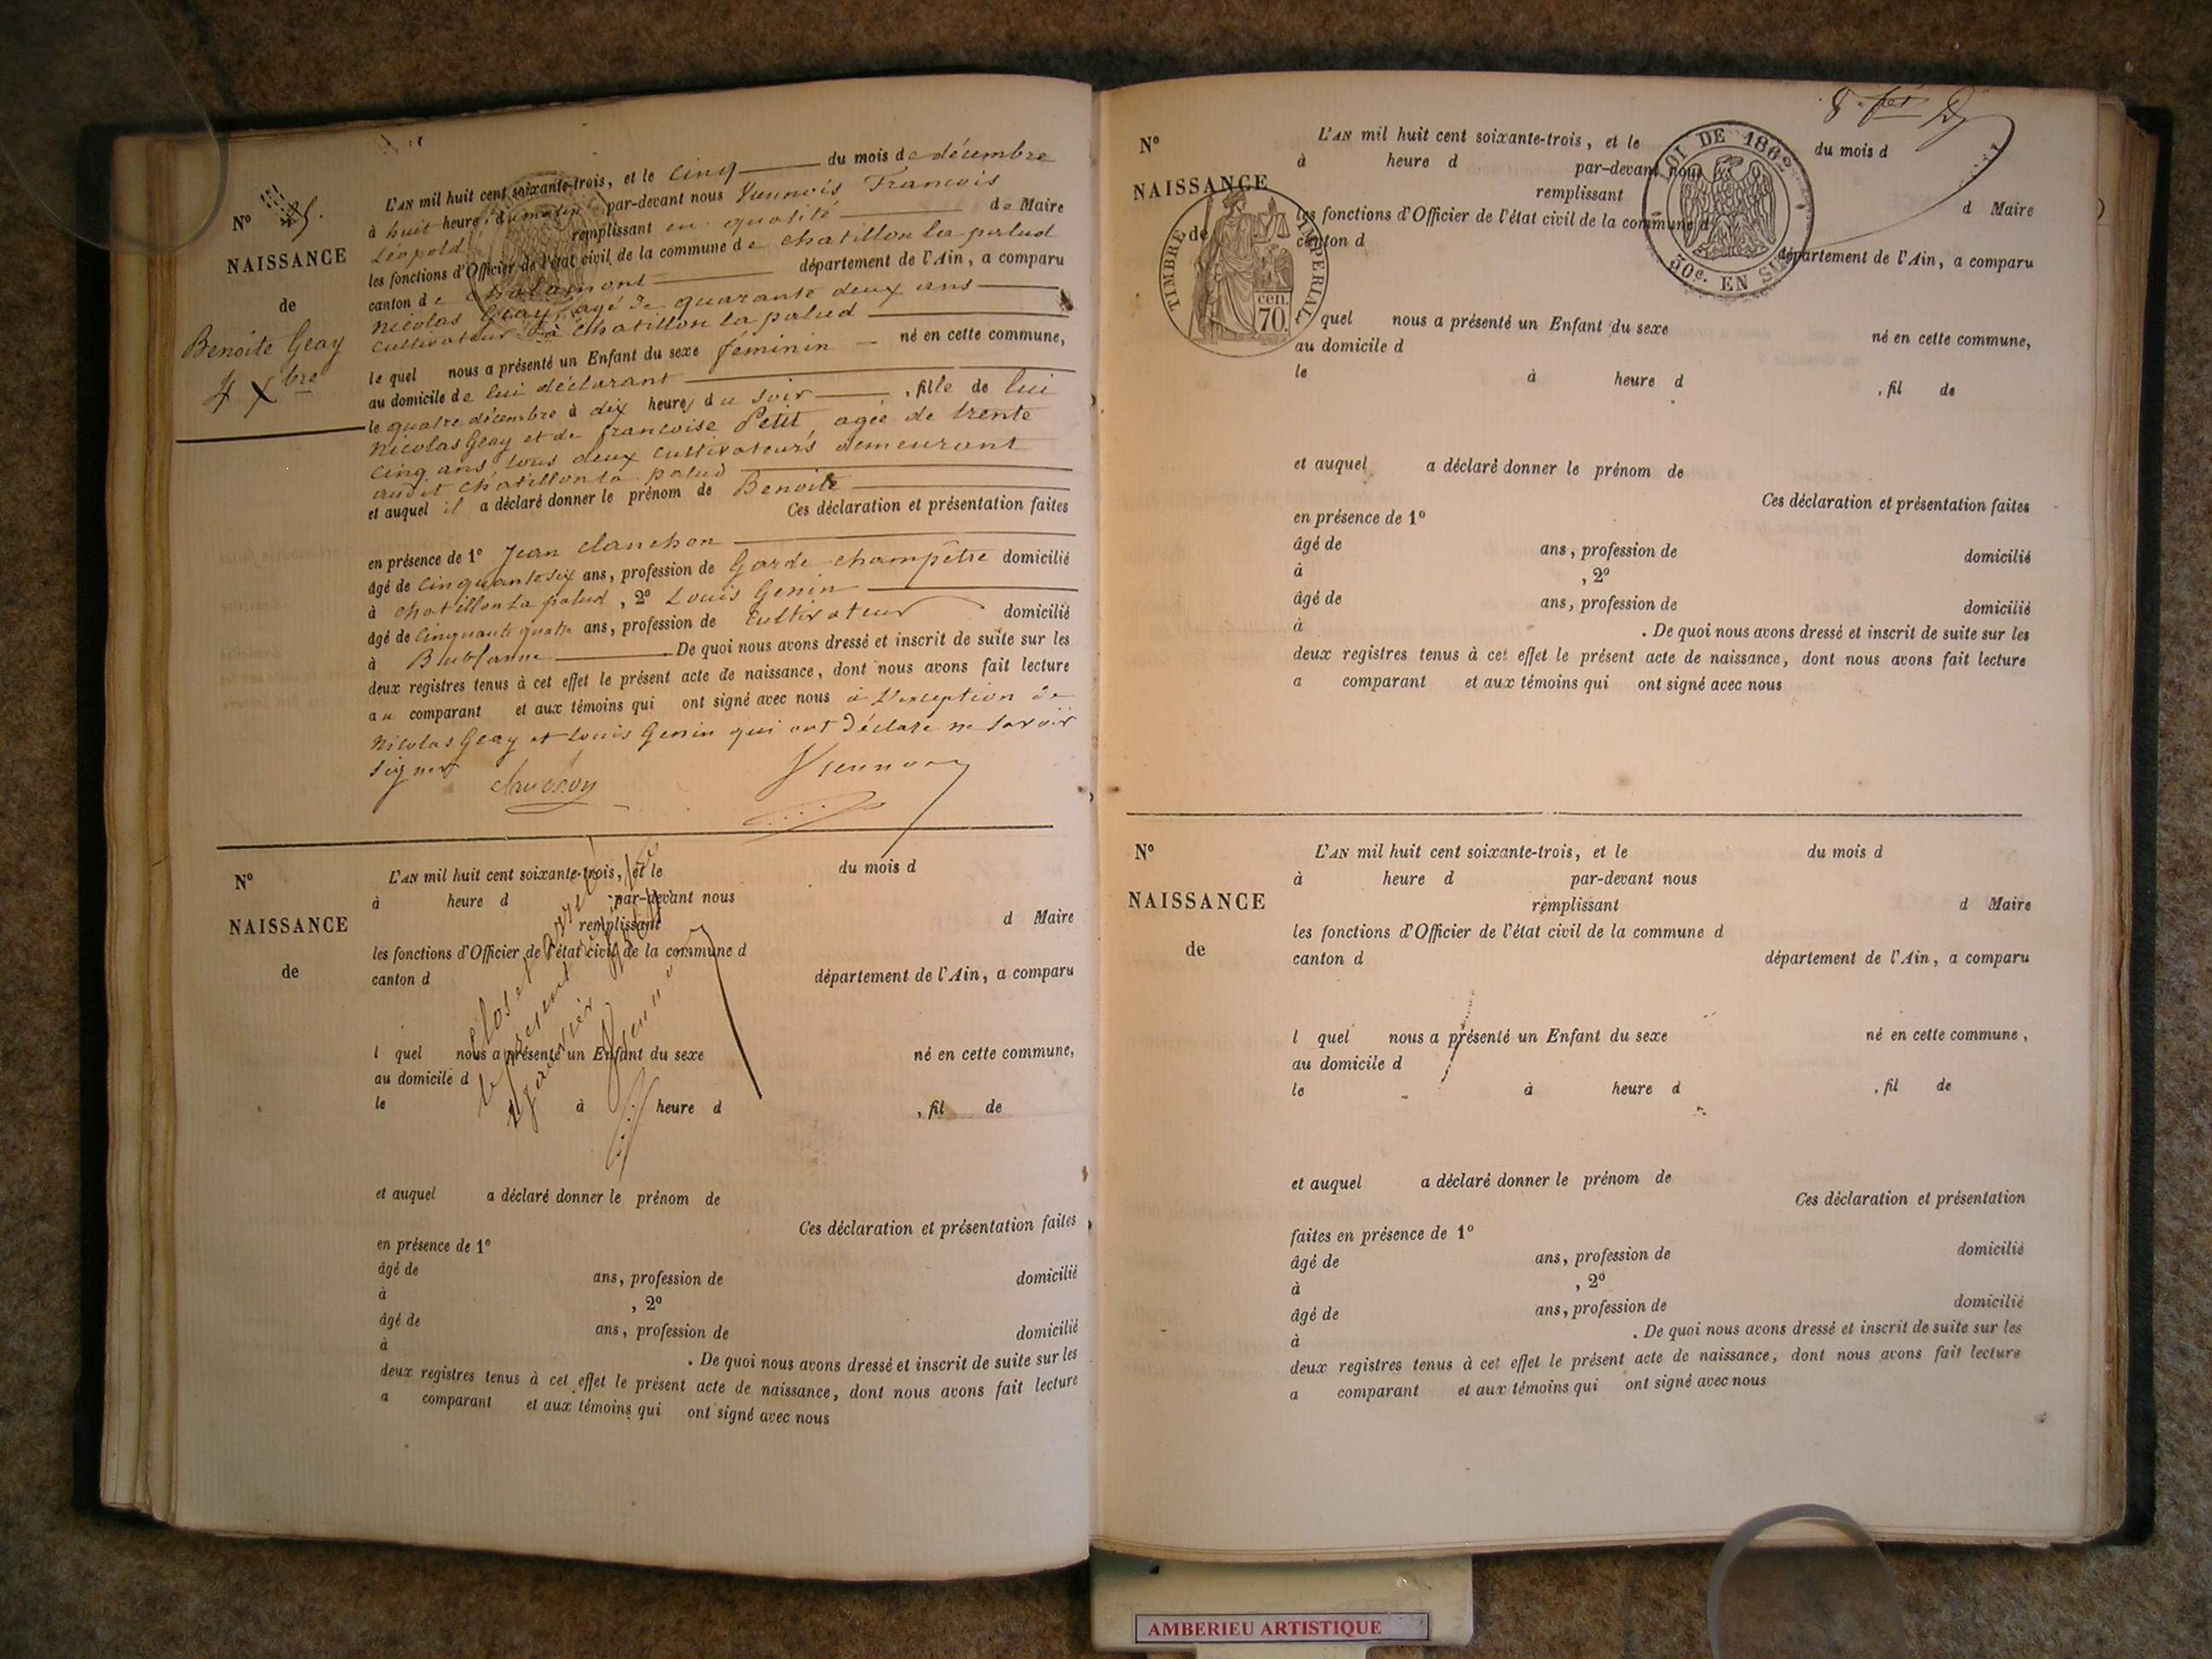 L'AN mil huit cent soixante-trois, et le cinq du mois de décembre
à huit heures du matin par-devant nous Viennois Francois
Léopold remplissant en qualité de Maire
les fonctions d'Officier de l'état civil de la commune de chatillon la palud
canton de chalamont département de l'Ain, a comparu
Nicolas Geay, agé de quarante deux ans
cultivateur à chatillon la palud
le quel nous a présenté un Enfant du sexe féminin né en cette commune,
au domicile de lui déclarant
le quatre décembre à dix heures du soir, fille de lui
Nicolas Geay et de francoise Petit, agée de trente
cinq ans, tous deux cultivateurs demeurant
audit chatillon la palud
et auquel il a déclaré donner le prénom de Benoite
Ces déclaration et présentation faites
en présence de 1º Jean clanchon
âgé de cinquante six ans, profession de Garde champêtre domicilié
à chatillon la palud, 2º Louis Genin
âgé de cinquante quatre ans, profession de cultivateur domicilié
à Bublanne. De quoi nous avons dressé et inscrit de suite sur les
deux registres tenus à cet effet le présent acte de naissance, dont nous avons fait lecture
au comparant et aux témoins qui ont signé avec nous à l'exception de
Nicolas Geay et Louis Genin qui ont déclaré ne savoir
signer
Viennois
Nº
NAISSANCE
de
Benoite Geay
4 Xbre
Nº
NAISSANCE
de
L'AN mil huit cent soixante-trois, et le du mois d
à heure d par-devant nous
remplissant d Maire
les fonctions d'Officier de l'état civil de la commune d
canton d département de l'Ain, a comparu
clos et arrêté
le présent
janvier
l quel nous a présenté un Enfant du sexe né en cette commune,
au domicile d
le à heure d , fil de
et auquel a déclaré donner le prénom de
Ces déclaration et présentation faites
en présence de 1º
âgé de ans, profession de domicilié
à , 2º
âgé de ans, profession de domicilié
à . De quoi nous avons dressé et inscrit de suite sur les
deux registres tenus à cet effet le présent acte de naissance, dont nous avons fait lecture
a comparant et aux témoins qui ont signé avec nous
Nº
NAISSANCE
de
TIMBRE IMPERIAL
cen.
70.
LOI DE 1862
30c. EN SUS
L'AN mil huit cent soixante-trois, et le du mois d
à heure d par-devant nous
remplissant d Maire
les fonctions d'Officier de l'état civil de la commune d
canton d département de l'Ain, a comparu
quel nous a présenté un Enfant du sexe né en cette commune,
au domicile d
le à heure d , fil de
et auquel a déclaré donner le prénom de
Ces déclaration et présentation faites
en présence de 1º
âgé de ans, profession de domicilié
à , 2º
âgé de ans, profession de domicilié
à . De quoi nous avons dressé et inscrit de suite sur les
deux registres tenus à cet effet le présent acte de naissance, dont nous avons fait lecture
a comparant et aux témoins qui ont signé avec nous
Nº
NAISSANCE
de
L'AN mil huit cent soixante-trois, et le du mois d
à heure d par-devant nous
remplissant d Maire
les fonctions d'Officier de l'état civil de la commune d
canton d département de l'Ain, a comparu
l quel nous a présenté un Enfant du sexe né en cette commune,
au domicile d
le à heure d , fil de
et auquel a déclaré donner le prénom de
Ces déclaration et présentation
faites en présence de 1º
âgé de ans, profession de domicilié
à , 2º
âgé de ans, profession de domicilié
à . De quoi nous avons dressé et inscrit de suite sur les
deux registres tenus à cet effet le présent acte de naissance, dont nous avons fait lecture
a comparant et aux témoins qui ont signé avec nous
AMBERIEU ARTISTIQUE